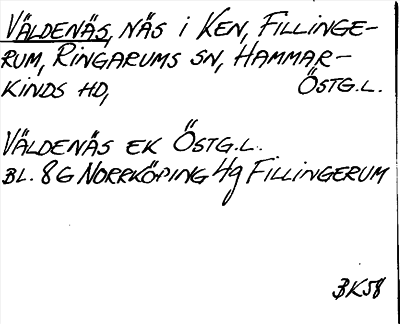 VÄLDENÄS, NÄS I KEN, FILLINGE-
RUM, RINGARUMS SN, HAMMAR-
KINDS HD, ÖSTG.L.
VÄLDENÄS EK ÖSTG.L.
BL. 8G NORRKÖPING 4g FILLINGERUM
BK58